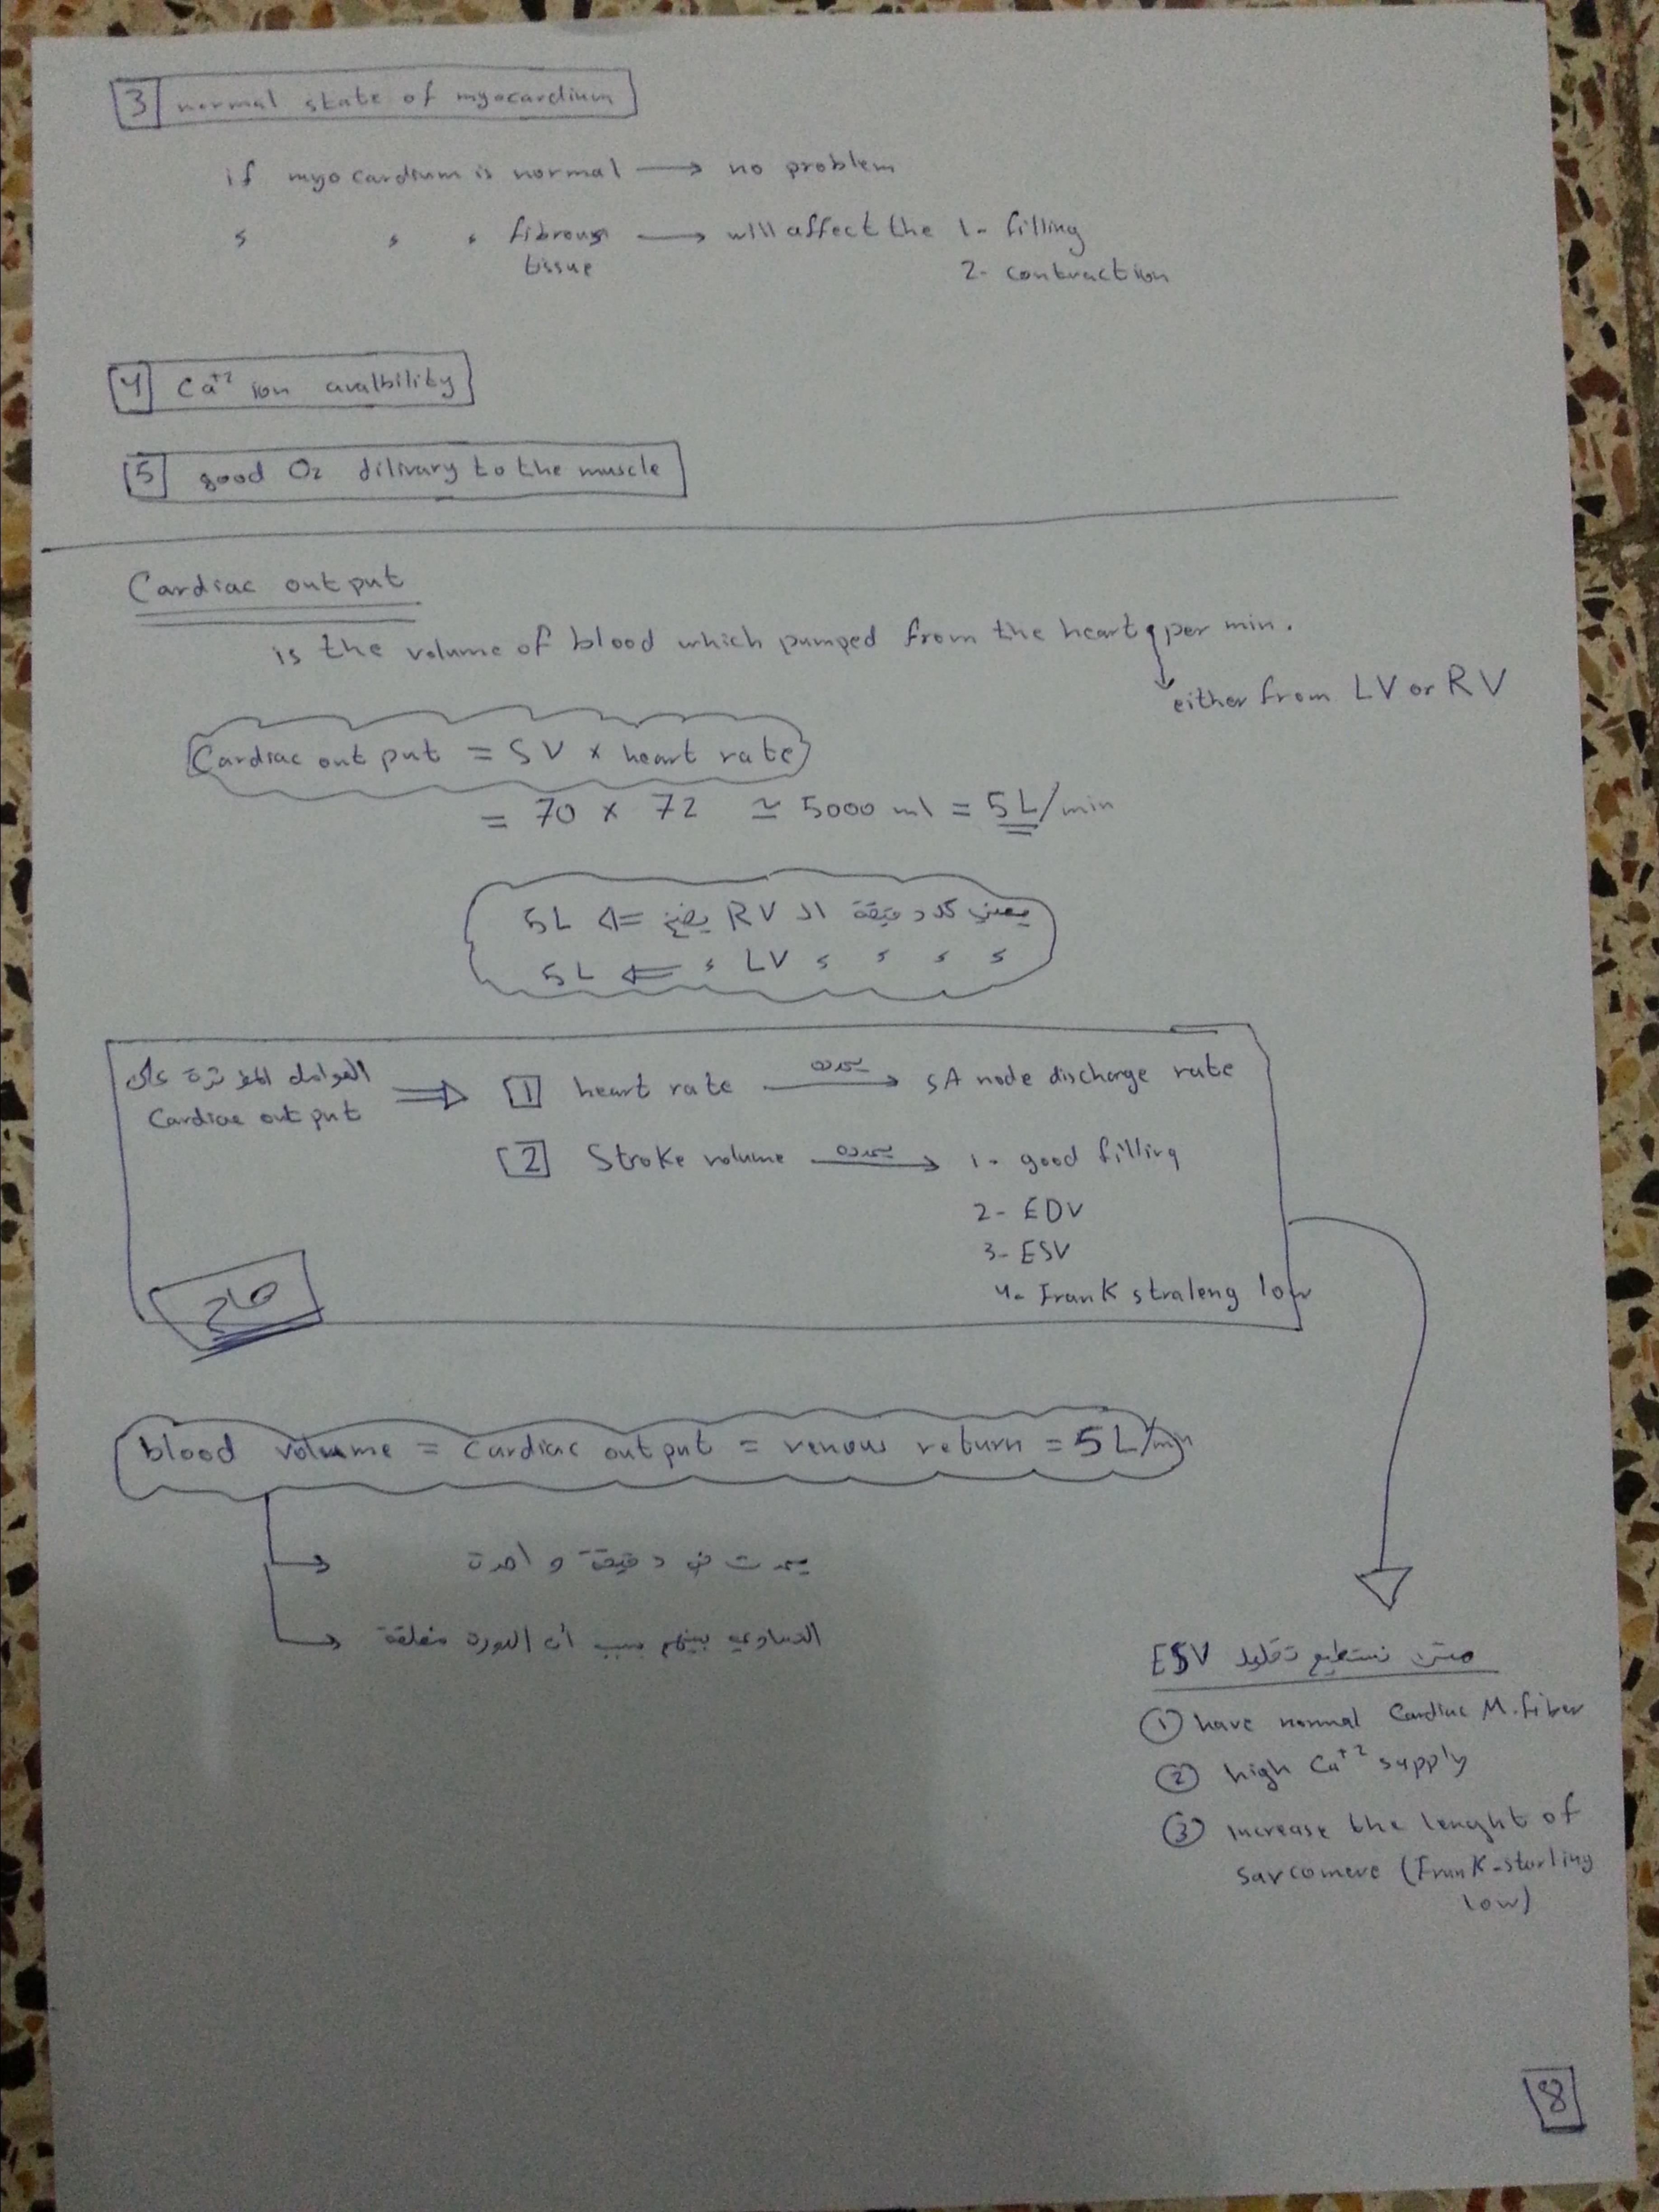 3 normal state of myocardium
if myocardium is normal → no problem
s s s fibrous → will affect the 1- filling
tissue
2- contraction
4 Ca+2 ion avalbility
5 good O2 dilivary to the muscle
Cardiac output
is the volume of blood which pumped from the heart per min.
either from LV or RV
Cardiac output = SV × heart rate
= 70 × 72 ≃ 5000 ml = 5L/min
يعني كل دقيقة الـ RV يضخ ⇐ 5L
s s s s LV s ⇐ 5L
العوامل المؤثرة على
Cardiac output ⇒
1 heart rate يحدده → SA node discharge rate
2 Stroke volume يحدده → 1- good filling
2- EDV
3- ESV
4- Frank straleng low
هام
blood volume = cardiac output = venous return = 5L/min
→ يحدث في دقيقة واحدة
→ التساوي بينهم بسبب أن الدورة مغلقة
متى نستطيع تقليل ESV
① have normal Cardiac M. fiber
② high Ca+2 supply
③ increase the lenght of
sarcomere (Frank-starling
low)
8